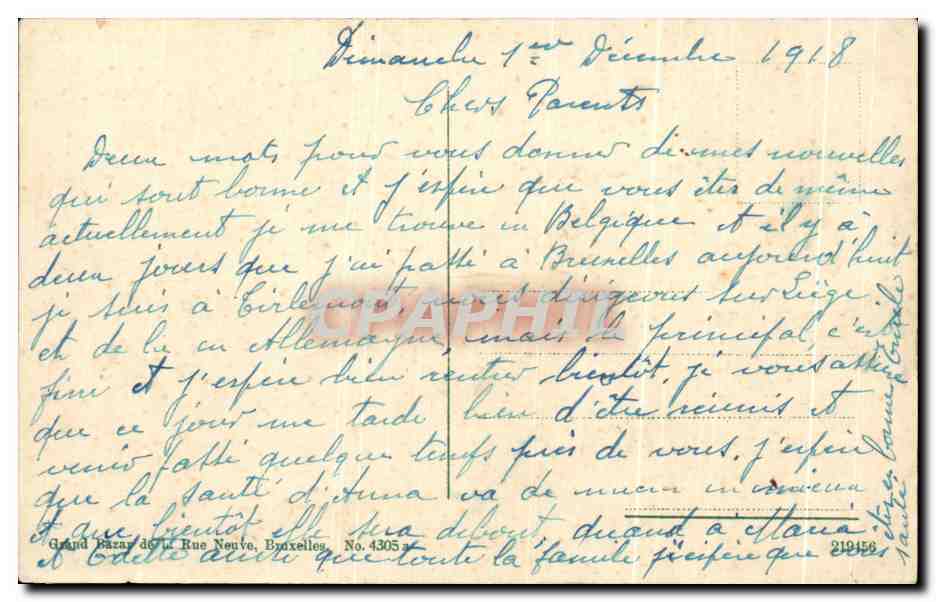 Dimanche 1er Décembre 1918
Chers Parents
Deux mots pour vous donner de mes nouvelles
qui sont bonne et j'espère que vous êtes de même
actuellement je me trouve en Belgique et il y à
deux jours que j'ai passé à Bruxelles aujourd'huit
je suis à Tirlemont, nous dirigeons sur Liège
et de la en Allemagne, mais le principal c'est
fini et j'espère bien rentrer bientôt, je vous assure
que ce jour me tarde bien d'être réunis et
venir passé quelque temps près de vous, j'espère
que la santé d'Anna va de mieux en mieux
et que bientôt elle sera debout, quand à Maria
et Odette ainsi que toute la famille j'espère que
êtes en bonne
santé
Grand Bazar de la Rue Neuve, Bruxelles. No. 4305
219456
CPAPHIL